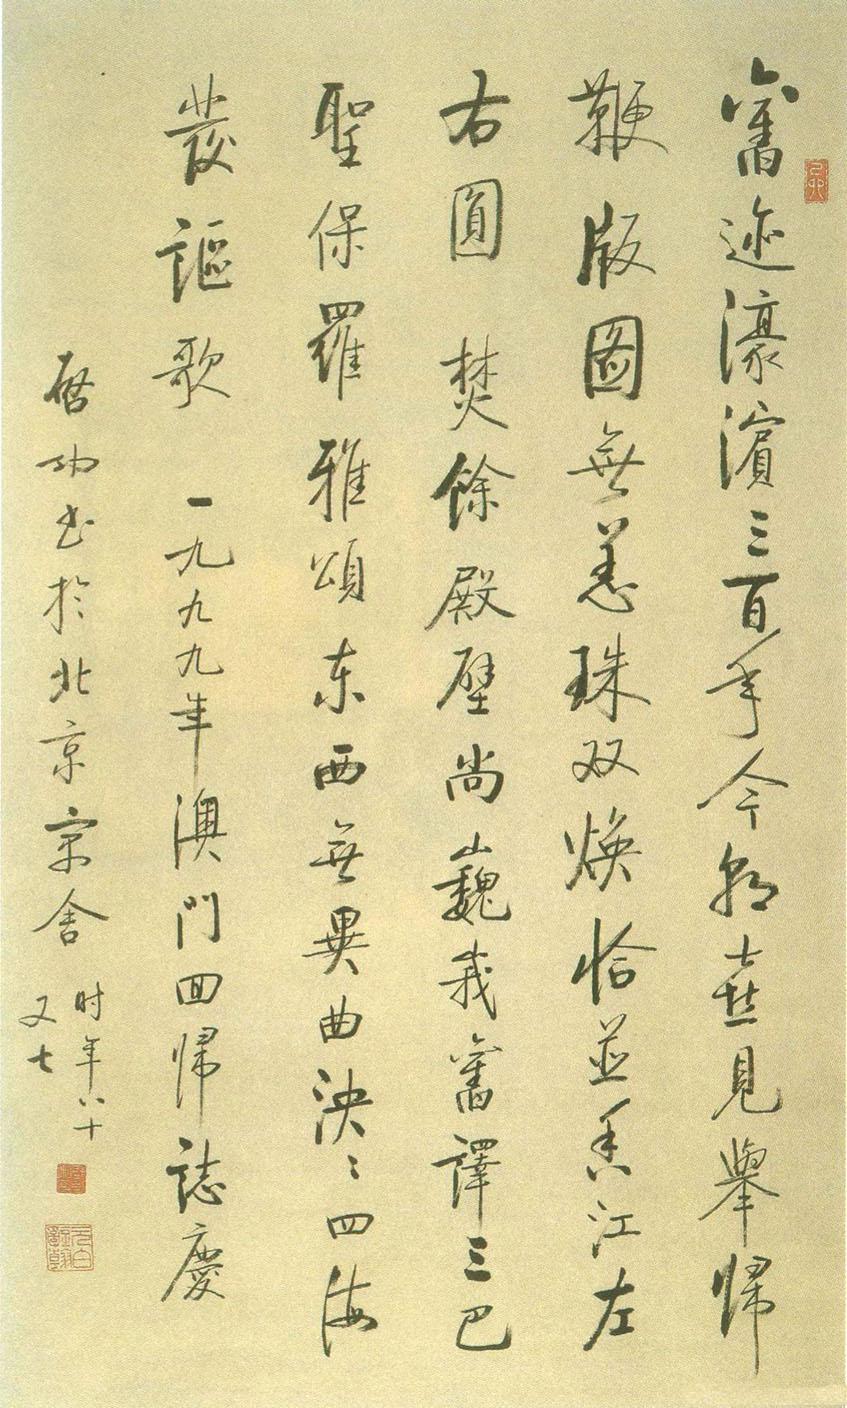 舊迹濠濱三百年今朝喜見舉歸
鞭版圖無恙珠双焕恰並香江左
右圓 焚餘殿壁尚巍峩舊譯三巴
聖保羅雅頌东西無異曲泱〻四海
發謳歌 一九九九年澳門回歸誌慶
启功书於北京寓舍
时年八十
又七